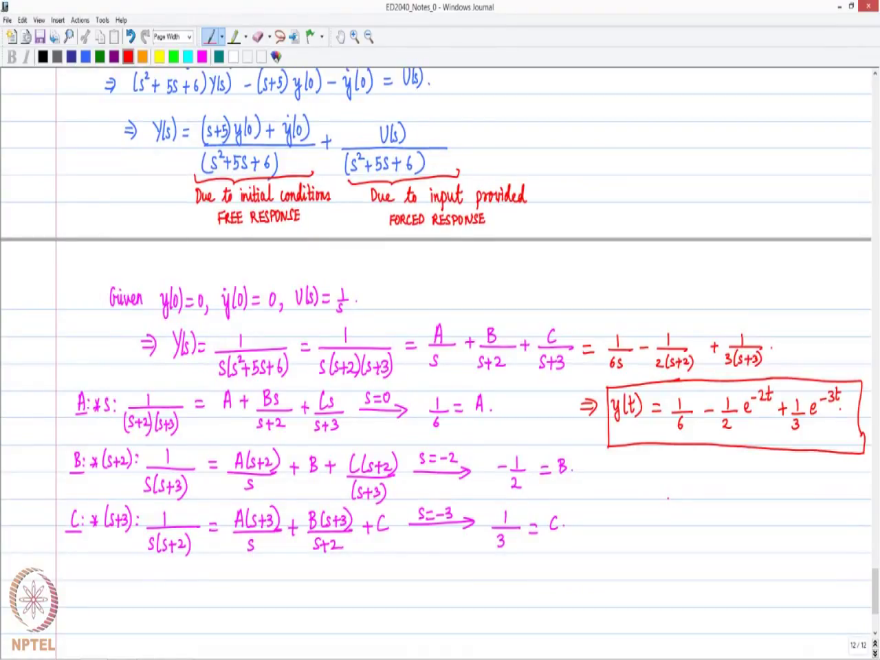 ED2040_Notes_0 - Windows Journal
File Edit View Insert Actions Tools Help
Page Width
B I
⇒ (s²+5s+6)Y(s) - (s+5)y(0) - ẏ(0) = U(s).
⇒ Y(s) = (s+5)y(0)+ẏ(0)/(s²+5s+6) + U(s)/(s²+5s+6)
Due to initial conditions Due to input provided
FREE RESPONSE FORCED RESPONSE
Given y(0)=0, ẏ(0)=0, U(s)=1/s.
⇒ Y(s) = 1/s(s²+5s+6) = 1/s(s+2)(s+3) = A/s + B/s+2 + C/s+3 = 1/6s - 1/2(s+2) + 1/3(s+3).
A: *s: 1/(s+2)(s+3) = A + Bs/s+2 + Cs/s+3 s=0 → 1/6 = A.
⇒ y(t) = 1/6 - 1/2 e^-2t + 1/3 e^-3t.
B: *(s+2): 1/s(s+3) = A(s+2)/s + B + C(s+2)/(s+3) s=-2 → -1/2 = B.
C: *(s+3): 1/s(s+2) = A(s+3)/s + B(s+3)/s+2 + C s=-3 → 1/3 = C.
NPTEL
12/12